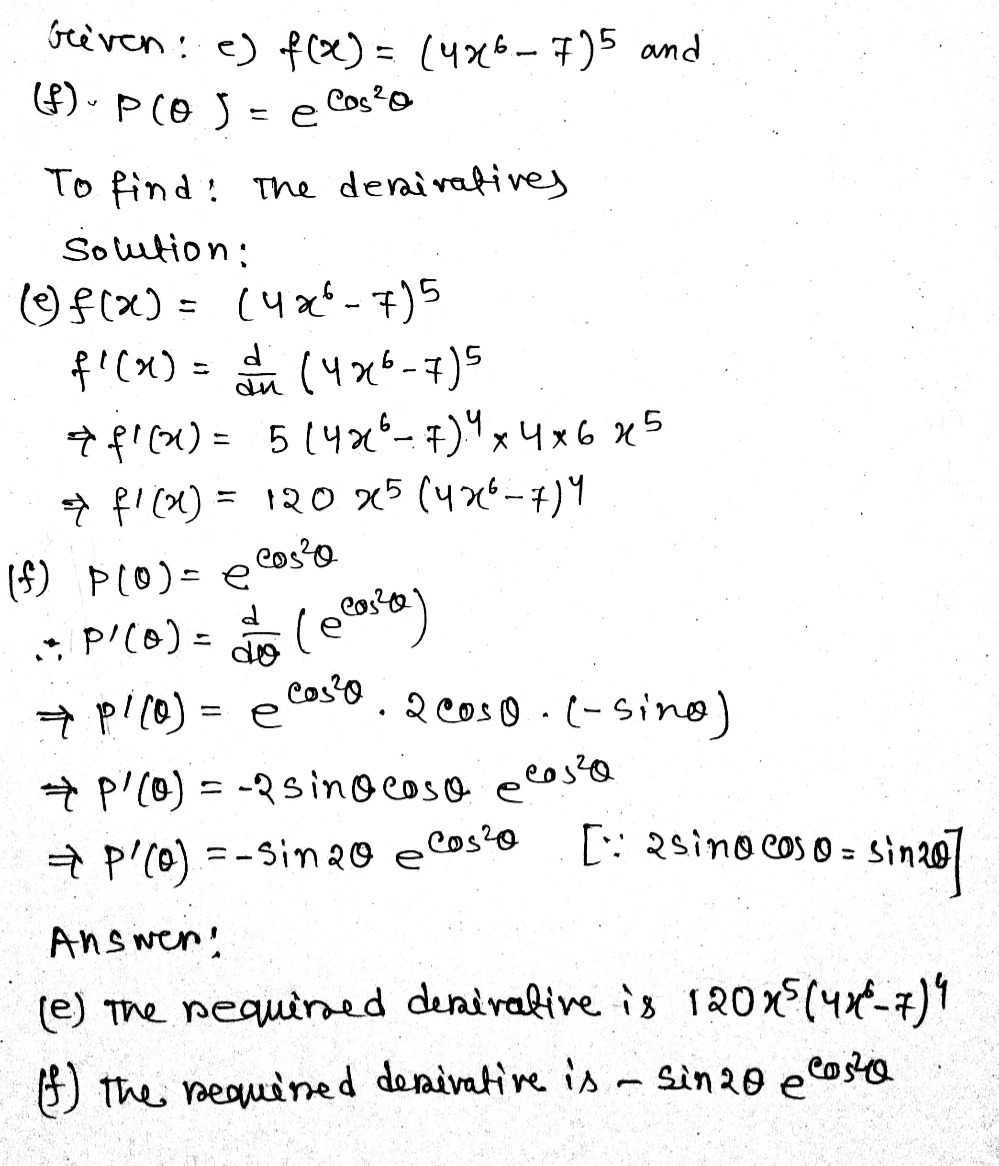 Given: e) f(x) = (4x⁶ - 7)⁵ and
(f). P(θ) = e^cos²θ
To find: The derivatives
Solution:
(e) f(x) = (4x⁶ - 7)⁵
f'(x) = d/dx (4x⁶ - 7)⁵
⇒ f'(x) = 5 (4x⁶ - 7)⁴ × 4 × 6 x⁵
⇒ f'(x) = 120 x⁵ (4x⁶ - 7)⁴
(f) P(θ) = e^cos²θ
∴ P'(θ) = d/dθ (e^cos²θ)
⇒ P'(θ) = e^cos²θ . 2 cosθ . (- sinθ)
⇒ P'(θ) = -2 sinθ cosθ e^cos²θ
⇒ P'(θ) = - sin2θ e^cos²θ [∵ 2 sinθ cosθ = sin2θ]
Answer:
(e) The required derivative is 120x⁵(4x⁶-7)⁴
(f) The required derivative is - sin2θ e^cos²θ